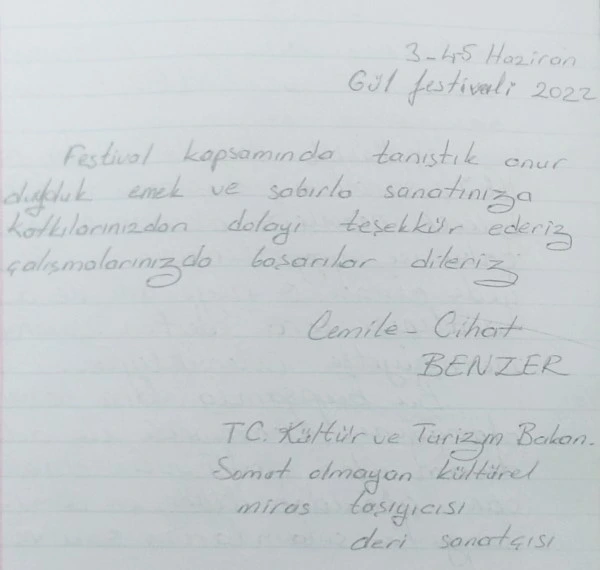 3-4-5 Haziran
Gül festivali 2022
Festival kapsamında tanıştık onur
duyduk emek ve sabırla sanatınıza
katkılarınızdan dolayi teşekkür ederiz
çalışmalarınızda başarılar dileriz
Cemile - Cihat
BENZER
TC. Kültür ve Turizm Bakan.
Somut olmayan kültürel
miras taşıyıcısı
deri sanatçısı